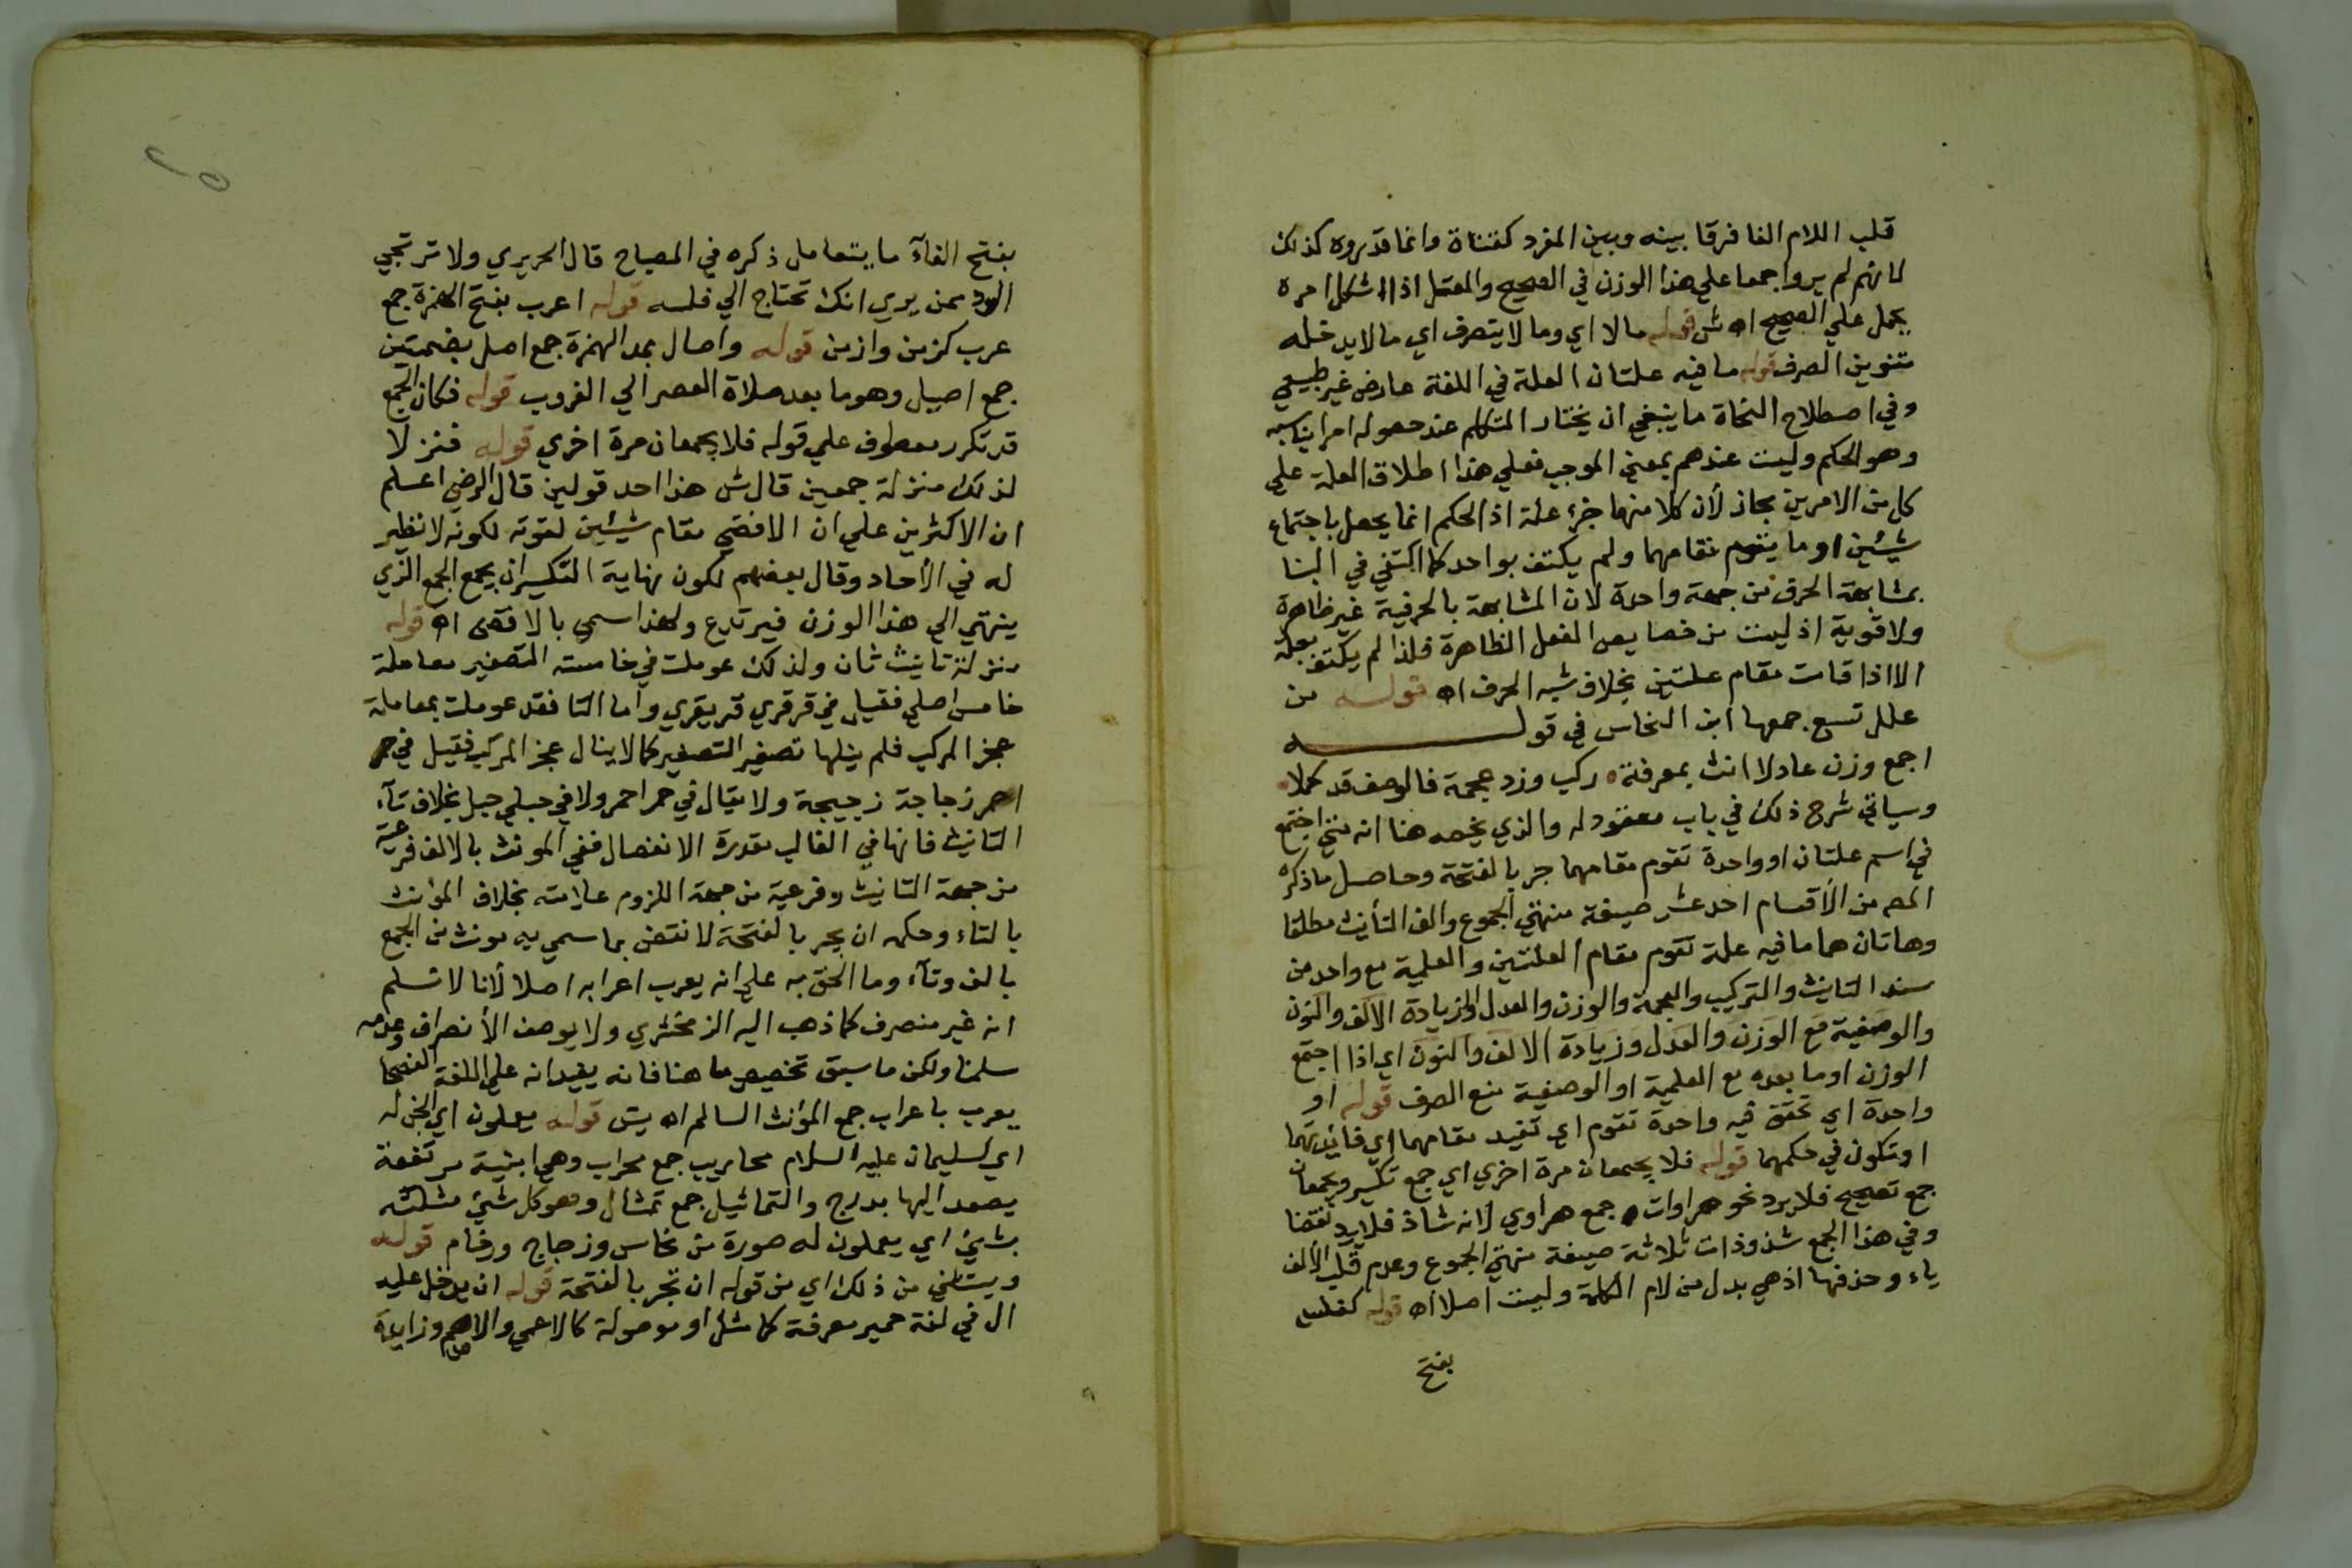 قلب اللام الفا فرقا بينه وبين المفرد كقناة وانما قدروه كذلك
لانهم لم يروا جمعا علي هذا الوزن في الصحيح والمعتل اذا اشكل امره
يحمل علي الصحيح اه ش قوله ما لا اي وما لا يتصرف اي ما لا يدخله
تنوين الصرف قوله ما فيه علتان العلة في اللغة عارض غير طبيعي
وفي اصطلاح النحاة ما ينبغي ان يختار المتكلم عند حصوله امرا يناسبه
وهو الحكم وليست عندهم بمعني الموجب فعلي هذا اطلاق العلة علي
كل من الامرين مجاز لأن كلا منهما جزء علة اذ الحكم انما يحصل باجتماع
شيئين او ما يقوم مقامهما ولم يكتف بواحد كما اكتفي في البنا
بمشابهة الحرف من جهة واحدة لان المشابهة بالحرفية غير ظاهرة
ولا قوية اذ ليست من خصايص الفعل الظاهرة فلذا لم يكتف بعلة
الا اذا قامت مقام علتين بخلاف شبه الحرف اه قوله من
علل تسع جمعها ابن النحاس في قوله
اجمع وزن عادلا انث بمعرفة ركب وزد عجمة فالوصف قد كملا
وسياتي شرح ذلك في باب معقود له والذي يخصه هنا انه متي اجتمع
في اسم علتان او واحدة تقوم مقامهما جر بالفتحة وحاصل ما ذكره
المص من الأقسام احد عشر صيغة منتهي الجموع والف التأنيث مطلقا
وهاتان هما ما فيه علة تقوم مقام العلتين والعلمية مع واحد من
ستة التانيث والتركيب والعجمة والوزن والعدل وزيادة الالف والنون
والوصفية مع الوزن والعدل وزيادة الالف والنون اي اذا اجتمع
الوزن او ما بعده مع العلمية او الوصفية منع الصرف قوله او
واحدة اي تحقق فيه واحدة تقوم اي تفيد مقامهما اي فائدتهما
او تكون في حكمهما قوله فلا يجمعان مرة اخري اي جمع تكسير ويجمعان
جمع تصحيح فلا يرد نحو هراوات جمع هراوي لانه شاذ فلا يرد نقضا
وفي هذا الجمع شذوذات ثلاثة صيغة منتهي الجموع وعدم قلب الألف
ياء وحذفها اذ هي بدل من لام الكلمة وليست اصلا اه قوله كفلس
بفتح
بفتح الفآء ما يتعامل ذكره في المصباح قال الحريري ولا ترتجي
الود ممن يري انك تحتاج الي فلسه قوله اعرب بفتح الهمزة جمع
عرب كزمن وازمن قوله واصال بمد الهمزة جمع اصل بضمتين
جمع اصيل وهو ما بعد صلاة العصر الي الغروب قوله فكان الجمع
قد تكرر معطوف علي قوله فلا يجمعان مرة اخري قوله فنزلا
لذلك منزلة جمعين قال ش هذا احد قولين قال الرضي اعلم
ان الاكثرين علي ان الاقصي مقام شيئين لقوته لكونه لا نظير
له في الأحاد وقال بعضهم لكون نهاية التكسير ان يجمع الجمع الذي
ينتهي الي هذا الوزن فيرتدع ولهذا سمي بالاقصي اه قوله
منزلة تانيث ثان ولذلك عوملت في خامسته التصغير معاملة
خامس اصلي فقيل في قرقري قريقري واما التا فقد عوملت بمعاملة
عجز المركب فلم ينلها تصغير التصغير كما لا ينال عجز المركب فقيل في
زجاجة زجيجة ولا يقال في حمرا حمر ولا في حبلي حبل بخلاف تآء
التانيث فانها في الغالب مقدرة الانفصال ففي المونث بالالف فرعية
من جهة التانيث وفرعية من جهة اللزوم علامته بخلاف المؤنث
بالتاء وحكمه ان يجر بالفتحة لا نتقض بما سمي به مونث من الجمع
بالف وتآء وما الحق به علي انه يعرب اعرابه اصلا لأنا لا نسلم
انه غير منصرف كما ذهب اليه الزمخشري ولا يوصف الأنصراف وعدمه
سلمنا ولكن ما سبق تخصيص ما هنا فانه يفيد انه علي اللغة الفصحا
يعرب باعراب جمع المؤنث السالم اه يس قوله يعملون اي الجن له
اي لسليمان عليه السلام محاريب جمع محراب وهي ابنية مرتفعة
يصعد اليها بدرج والتماثيل جمع تمثال وهو كل شيئ مثلته
بشيئ اي يعملون له صورة من نحاس وزجاج ورخام قوله
ويستثني من ذلك اي من قوله ان تجر بالفتحة قوله ان يدخل عليه
ال في لغة حمير معرفة كما مثل او موصولة كالاعمي والاصم وزايدة